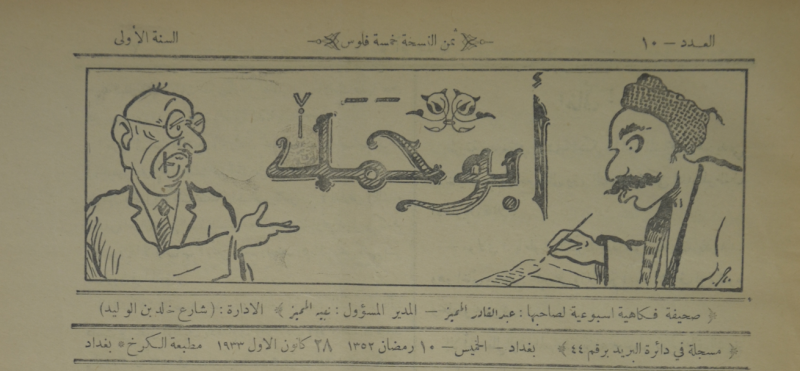 العدد — ١٠
ثمن النسخة خمسة فلوس
السنة الأولى
أبو حمد
﴿ صحيفة فكاهية اسبوعية لصاحبها : عبدالقادر المميز — المدير المسؤول : نجيب المميز ﴾ الادارة : (شارع خالد بن الوليد)
﴿ مسجلة في دائرة البريد برقم ٤٤ ﴾ بغداد — الخميس — ١٠ رمضان ١٣٥٢ ٢٨ كانون الاول ١٩٣٣ مطبعة الكرخ * بغداد